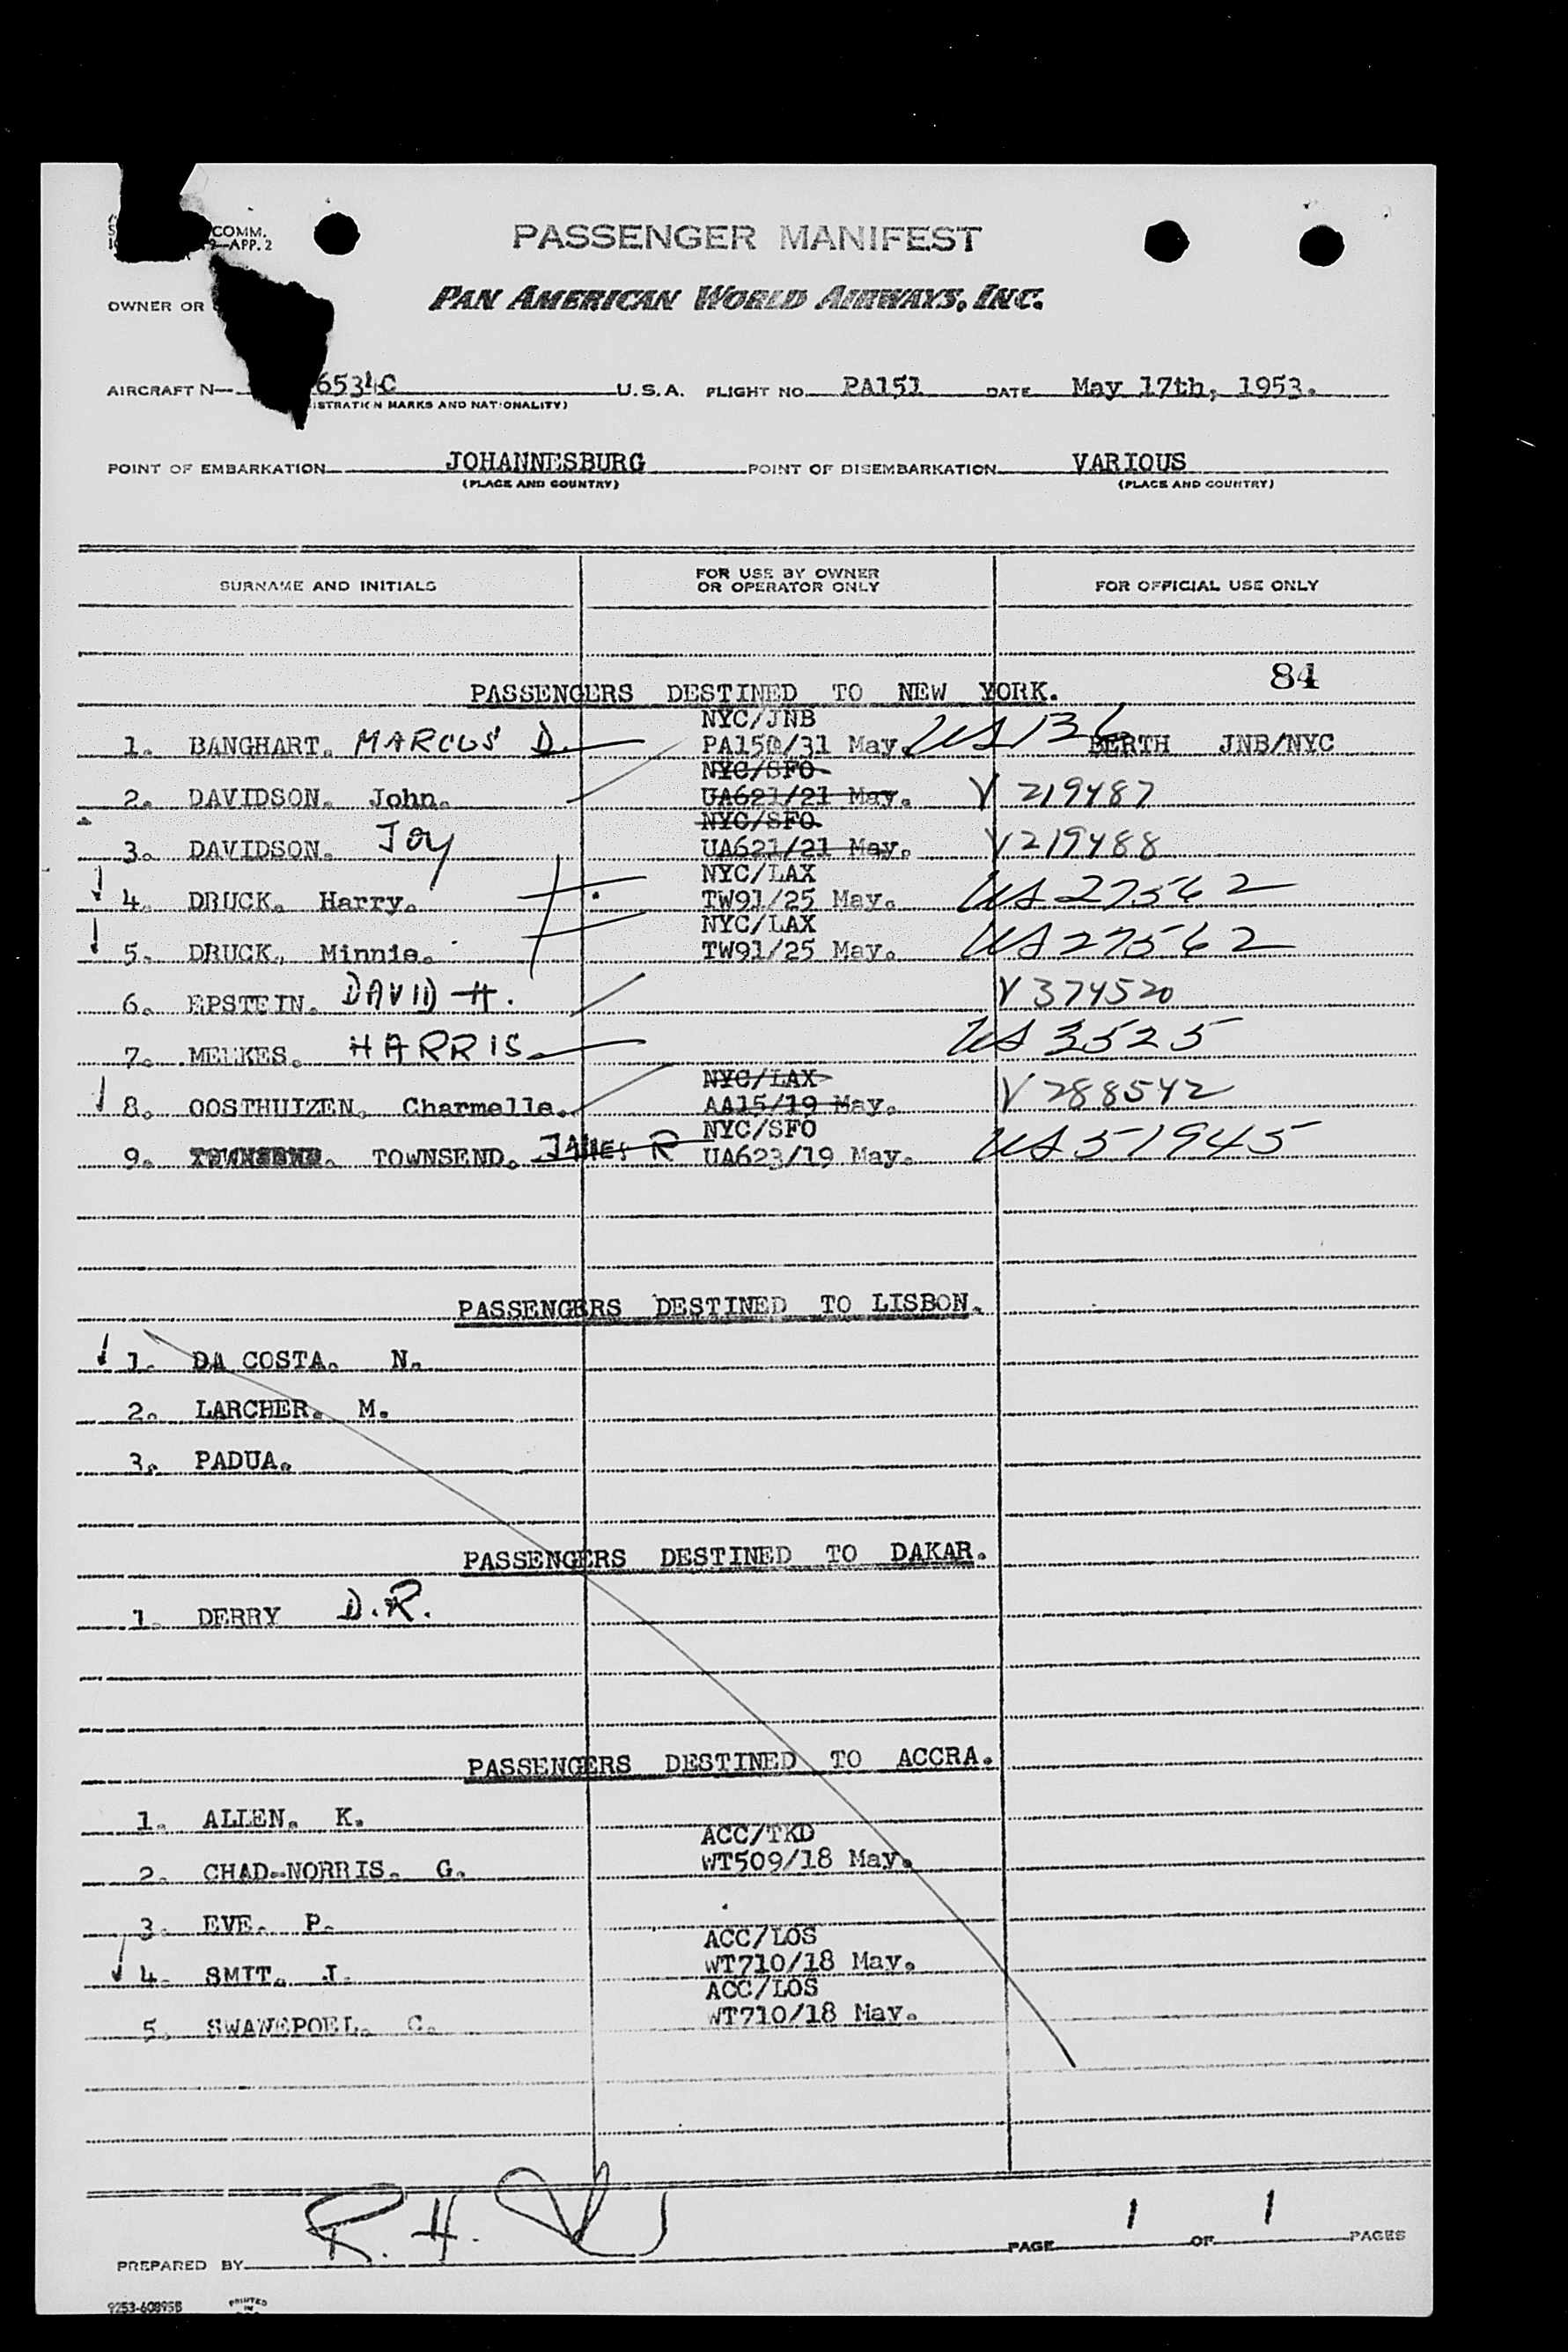 COMM.
9-APP. 2
PASSENGER MANIFEST
OWNER OR
PAN AMERICAN WORLD AIRWAYS, INC.
AIRCRAFT N— 6534C U.S.A. FLIGHT NO. PA151 DATE May 17th, 1953.
ISTRATION MARKS AND NATIONALITY)
POINT OF EMBARKATION JOHANNESBURG POINT OF DISEMBARKATION VARIOUS
(PLACE AND COUNTRY) (PLACE AND COUNTRY)
SURNAME AND INITIALS FOR USE BY OWNER OR OPERATOR ONLY FOR OFFICIAL USE ONLY
84
PASSENGERS DESTINED TO NEW YORK.
NYC/JNB
1. BANGHART. MARCUS D. PA150/31 May. US 136 BERTH JNB/NYC
NYC/SFO
2. DAVIDSON. John. UA621/21 May. V 219487
NYC/SFO.
3. DAVIDSON. Joy UA621/21 May. V 219488
NYC/LAX
4. DRUCK. Harry. TW91/25 May. US 27562
NYC/LAX
5. DRUCK, Minnie. TW91/25 May. US 27562
6. EPSTEIN. DAVID H. V 374520
7. MELKES. HARRIS US 3525
NYC/LAX
8. OOSTHUIZEN. Charmelle. AA15/19 May. V 288542
NYC/SFO
9. TOWNSEND. JAMES R UA623/19 May. US 51945
PASSENGERS DESTINED TO LISBON.
1. DA COSTA. N.
2. LARCHER. M.
3. PADUA.
PASSENGERS DESTINED TO DAKAR.
1. DERRY D.R.
PASSENGERS DESTINED TO ACCRA.
1. ALLEN. K.
ACC/TKD
2. CHAD-NORRIS. G. WT509/18 May.
3. EVE. P.
ACC/LOS
4. SMIT. J. WT710/18 May.
ACC/LOS
5. SWANEPOEL. C. WT710/18 May.
PREPARED BY R. H. PAGE 1 OF 1 PAGES
9253-60895B PRINTED IN